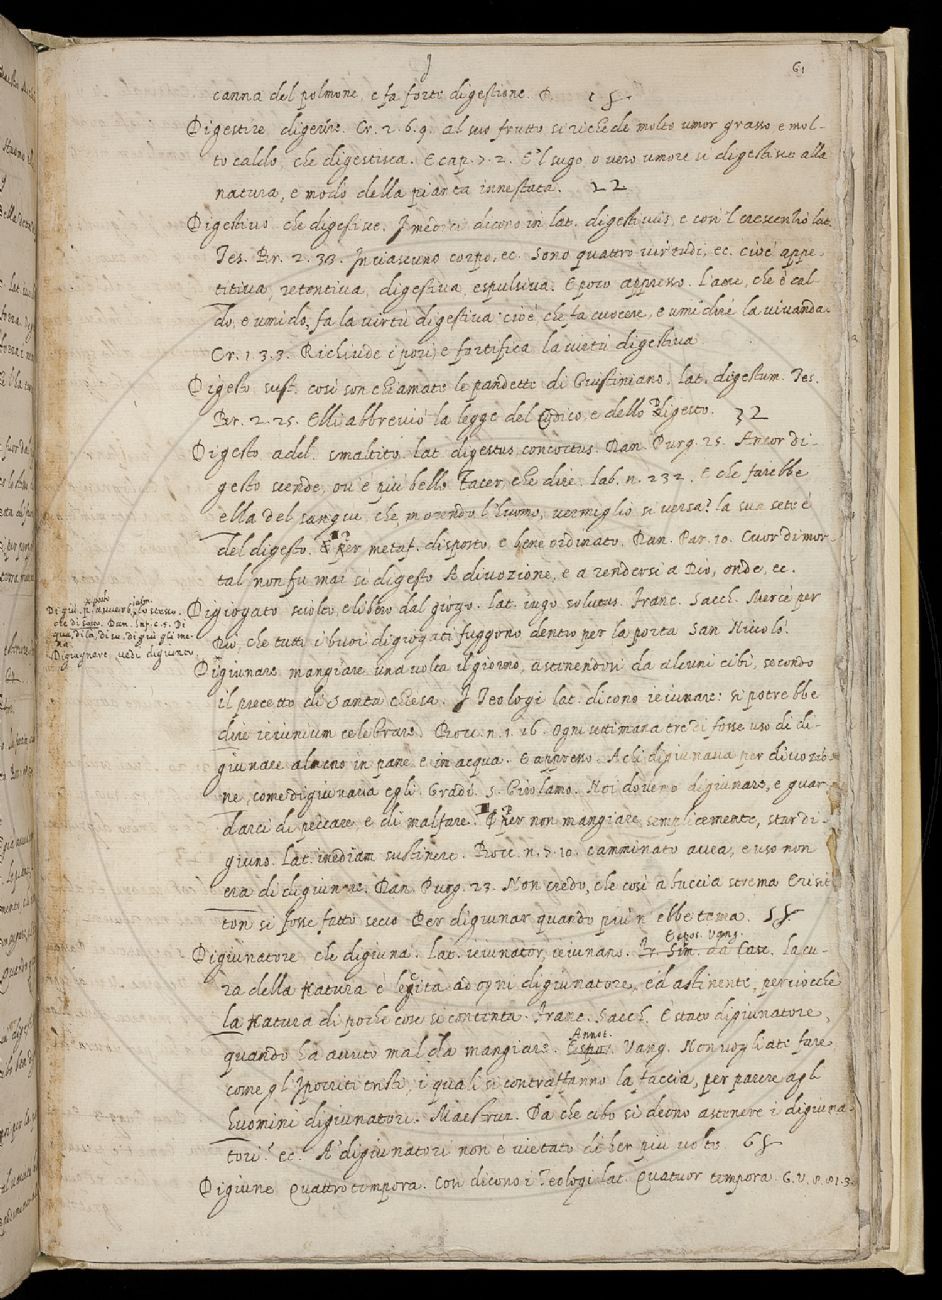 61
canna del polmone, e fa forte digestione.
Digestire digerire. Cr. 2. 6. 9. al suo frutto si richiede molto umor grasso e mol-
to caldo, che digestisca. E cap. 7. 2. E 'l sugo, o vero umore si digestisce alla
natura, e modo della pianta innestata. 22
Digestivo che digestisce. I medici dicono in lat. digestivus, e con 'l Crescenzio lat.
Tes. Br. 2. 33. In ciascuno corpo, ec. sono quattro virtudi, ec. cioè appe-
titiva, retentiva, digestiva, espulsiva. E poco appresso. L'aire, che è cal-
do, e umido, fa la virtù digestiva cioè che fa cuocere, e umidire la vivanda.
Cr. 1. 3. 3. Richiude i pori, e fortifica la virtù digestiva
Digesto sust. così son chiamate le pandette di Giustiniano. lat. digestum. Tes.
Br. 2. 25. Elli abbreviò la legge del Codico, e dello Digesto. 32
Digesto add. smaltito. lat. digestus, concoctus. Dan. Purg. 25. Ancor di-
gesto scende, ov' è più bello Tacer, che dire. Lab. n. 232. E che farebbe
ella del sangue, che, morendo l'huomo, vermiglio si versa? la sua sete è
del digesto. Per metaf. disposto, e bene ordinato. Dan. Par. 10. Cuor di mor-
tal non fu mai sì digesto A divozione, e a rendersi a Dio, onde, ec.
Digiogato sciolto, e libero dal giogo. lat. iugo solutus. Franc. Sacch. Mercè per
Dio, che tutti i buoi digiogati fuggono dentro per la porta San Niccolò.
Di giù avverb. lo stesso,
che di sotto. Dan. Inf. c. 5. Di
qua, di là, di su, di giù gli me-
na.
Digiugnere, vedi digiunto.
Digiunare mangiare una volta il giorno, astenendosi da alcuni cibi, secondo
il precetto di Santa Chiesa. I Teologi lat. dicono ieiunare: si potrebbe
dire ieiunium celebrare. Bocc. n. 1. 16. Ogni settimana tre dì fosse uso di di-
giunare almeno in pane e in acqua. E appresso. A chi digiunava per divozio-
ne, come digiunava egli. Gradi. S. Girolamo. Noi dovemo digiunare, e guar-
darci di peccare e di malfare. Per non mangiare semplicemente, star di-
giuno. Lat. inediam sustinere. Bocc. n. 7. 10. camminato avea, e uso non
era di digiunare. Dan. Purg. 23. Non credo, che così a buccia strema Erisit-
ton si fosse fatto secco Per digiunar quando più n' ebbe tema.
Digiunatore che digiuna. lat. ieiunator, ieiunans. Espos. Vang. la cu-
ra della Natura è legita ad ogni digiunatore, ed astinente, perciocchè
la Natura di poche cose si contenta. Franc. Sacch. È stato digiunatore,
quando ha avuto mal da mangiare. Annot. Vang. Non vogliate fare
come gl' Ipocriti tristi, i quali si contraffanno la faccia, per parere agli
huomini digiunatori. Maestruz. Da che cibo si deono astenere i digiuna-
tori? ec. A' digiunatori non è vietato di ber più volte
Digiune Quattro tempora. Così dicono i Teologi lat. Quatuor tempora. G. V. 8. 81. 3.